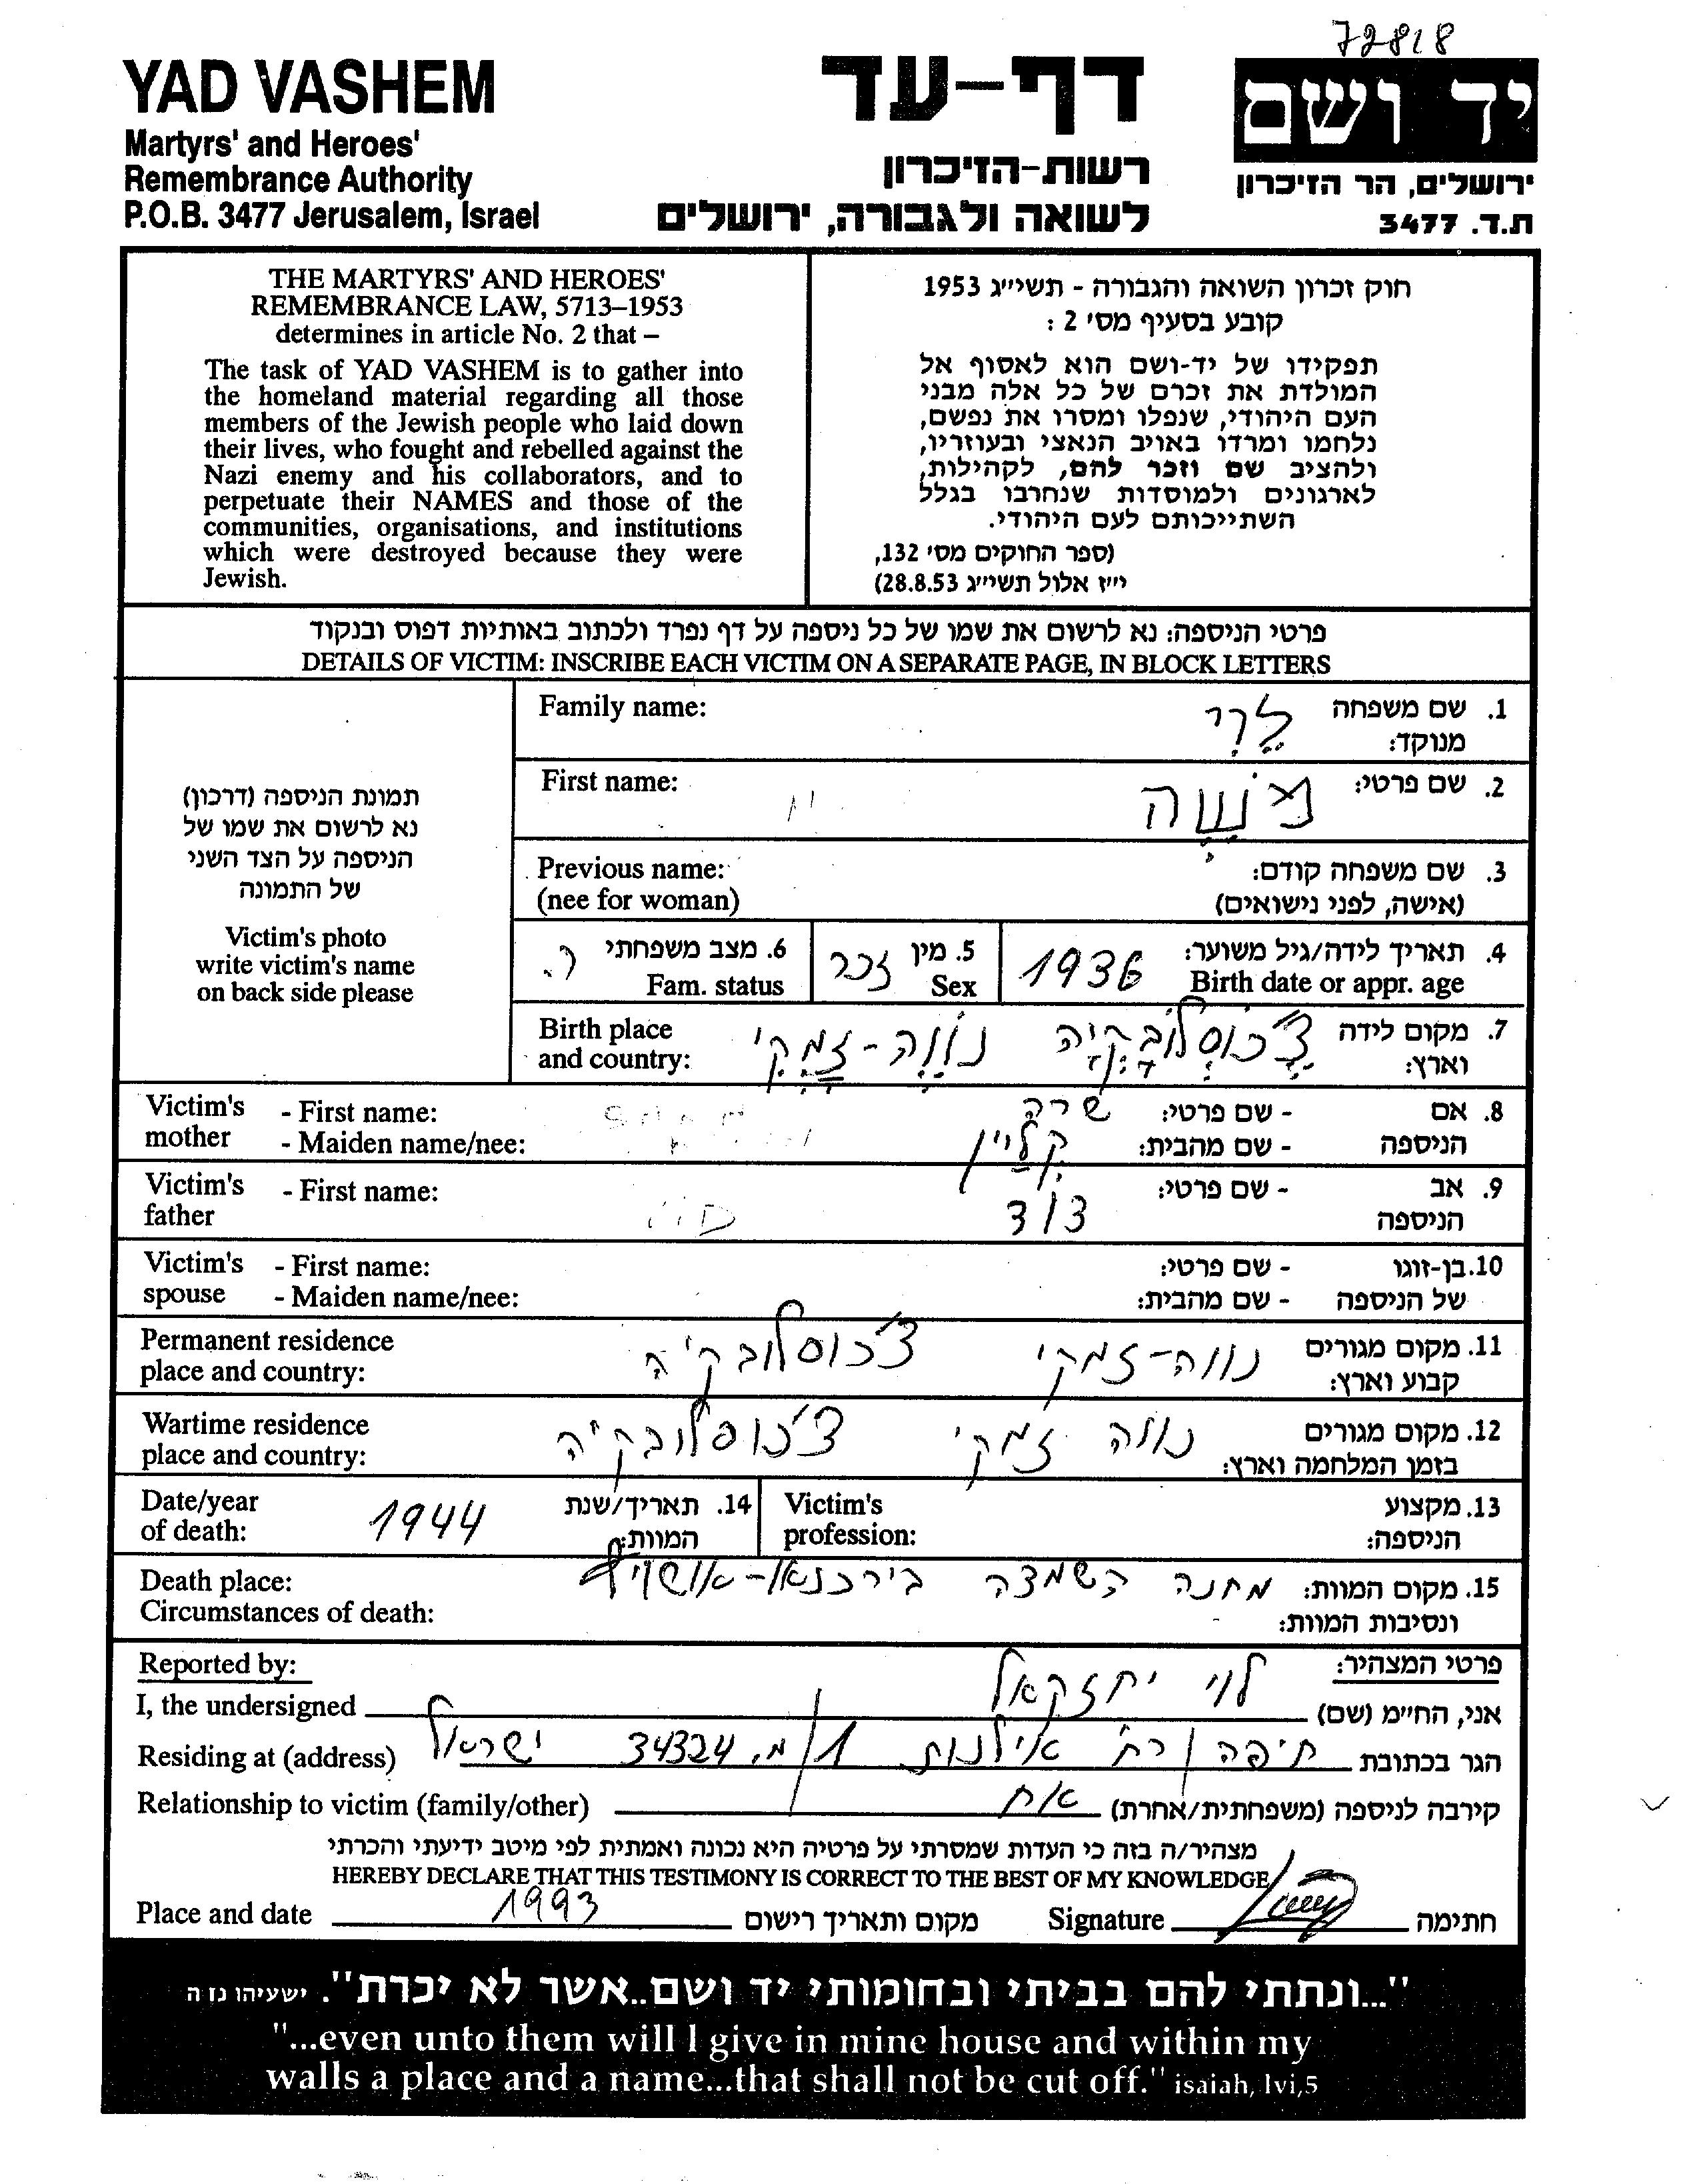 72818
YAD VASHEM
Martyrs' and Heroes'
Remembrance Authority
P.O.B. 3477 Jerusalem, Israel
דף-עד
רשות-הזיכרון
לשואה ולגבורה, ירושלים
יד ושם
ירושלים, הר הזיכרון
ת.ד. 3477
THE MARTYRS' AND HEROES'
REMEMBRANCE LAW, 5713–1953
determines in article No. 2 that –
The task of YAD VASHEM is to gather into
the homeland material regarding all those
members of the Jewish people who laid down
their lives, who fought and rebelled against the
Nazi enemy and his collaborators, and to
perpetuate their NAMES and those of the
communities, organisations, and institutions
which were destroyed because they were
Jewish.
חוק זכרון השואה והגבורה - תשי״ג 1953
קובע בסעיף מס׳ 2 :
תפקידו של יד-ושם הוא לאסוף אל
המולדת את זכרם של כל אלה מבני
העם היהודי, שנפלו ומסרו את נפשם,
נלחמו ומרדו באויב הנאצי ובעוזריו,
ולהציב שם וזכר להם, לקהילות,
לארגונים ולמוסדות שנחרבו בגלל
השתייכותם לעם היהודי.
(ספר החוקים מס׳ 132,
י״ז אלול תשי״ג 28.8.53)
פרטי הניספה: נא לרשום את שמו של כל ניספה על דף נפרד ולכתוב באותיות דפוס ובנקוד
DETAILS OF VICTIM: INSCRIBE EACH VICTIM ON A SEPARATE PAGE, IN BLOCK LETTERS
תמונת הניספה (דרכון)
נא לרשום את שמו של
הניספה על הצד השני
של התמונה
Victim's photo
write victim's name
on back side please
Family name: 1. שם משפחה
מנוקד:
First name: 2. שם פרטי: מֹשֶה
Previous name: 3. שם משפחה קודם:
(nee for woman) (אישה, לפני נישואים)
4. תאריך לידה/גיל משוער: 1936 5. מין זכר 6. מצב משפחתי ר.
Birth date or appr. age Sex Fam. status
Birth place 7. מקום לידה צ'כוסלובקיה נווה-זמקי
and country: וארץ:
Victim's - First name: 8. אם - שם פרטי: שרה
mother - Maiden name/nee: הניספה - שם מהבית: קליין
Victim's - First name: 9. אב - שם פרטי: דוד
father הניספה
Victim's - First name: 10. בן-זוגו - שם פרטי:
spouse - Maiden name/nee: של הניספה - שם מהבית:
Permanent residence 11. מקום מגורים נווה-זמקי צ'כוסלובקיה
place and country: קבוע וארץ:
Wartime residence 12. מקום מגורים נווה זמקי צ'כוסלובקיה
place and country: בזמן המלחמה וארץ:
Date/year 1944 14. תאריך/שנת Victim's 13. מקצוע
of death: המוות: profession: הניספה:
Death place: 15. מקום המוות: מחנה השמדה בירכנאו-אושויץ
Circumstances of death: ונסיבות המוות:
Reported by: פרטי המצהיר:
I, the undersigned אני, החי״מ (שם) לוי יחזקאל
Residing at (address) הגר בכתובת חיפה רח' אילנות 1 מ. 34324 ישראל
Relationship to victim (family/other) קירבה לניספה (משפחתית/אחרת) אח
מצהיר/ה בזה כי העדות שמסרתי על פרטיה היא נכונה ואמתית לפי מיטב ידיעתי והכרתי
HEREBY DECLARE THAT THIS TESTIMONY IS CORRECT TO THE BEST OF MY KNOWLEDGE
Place and date 1993 מקום ותאריך רישום Signature חתימה
"...ונתתי להם בביתי ובחומותי יד ושם..אשר לא יכרת". ישעיהו נו ה
"...even unto them will I give in mine house and within my
walls a place and a name...that shall not be cut off." isaiah, lvi,5